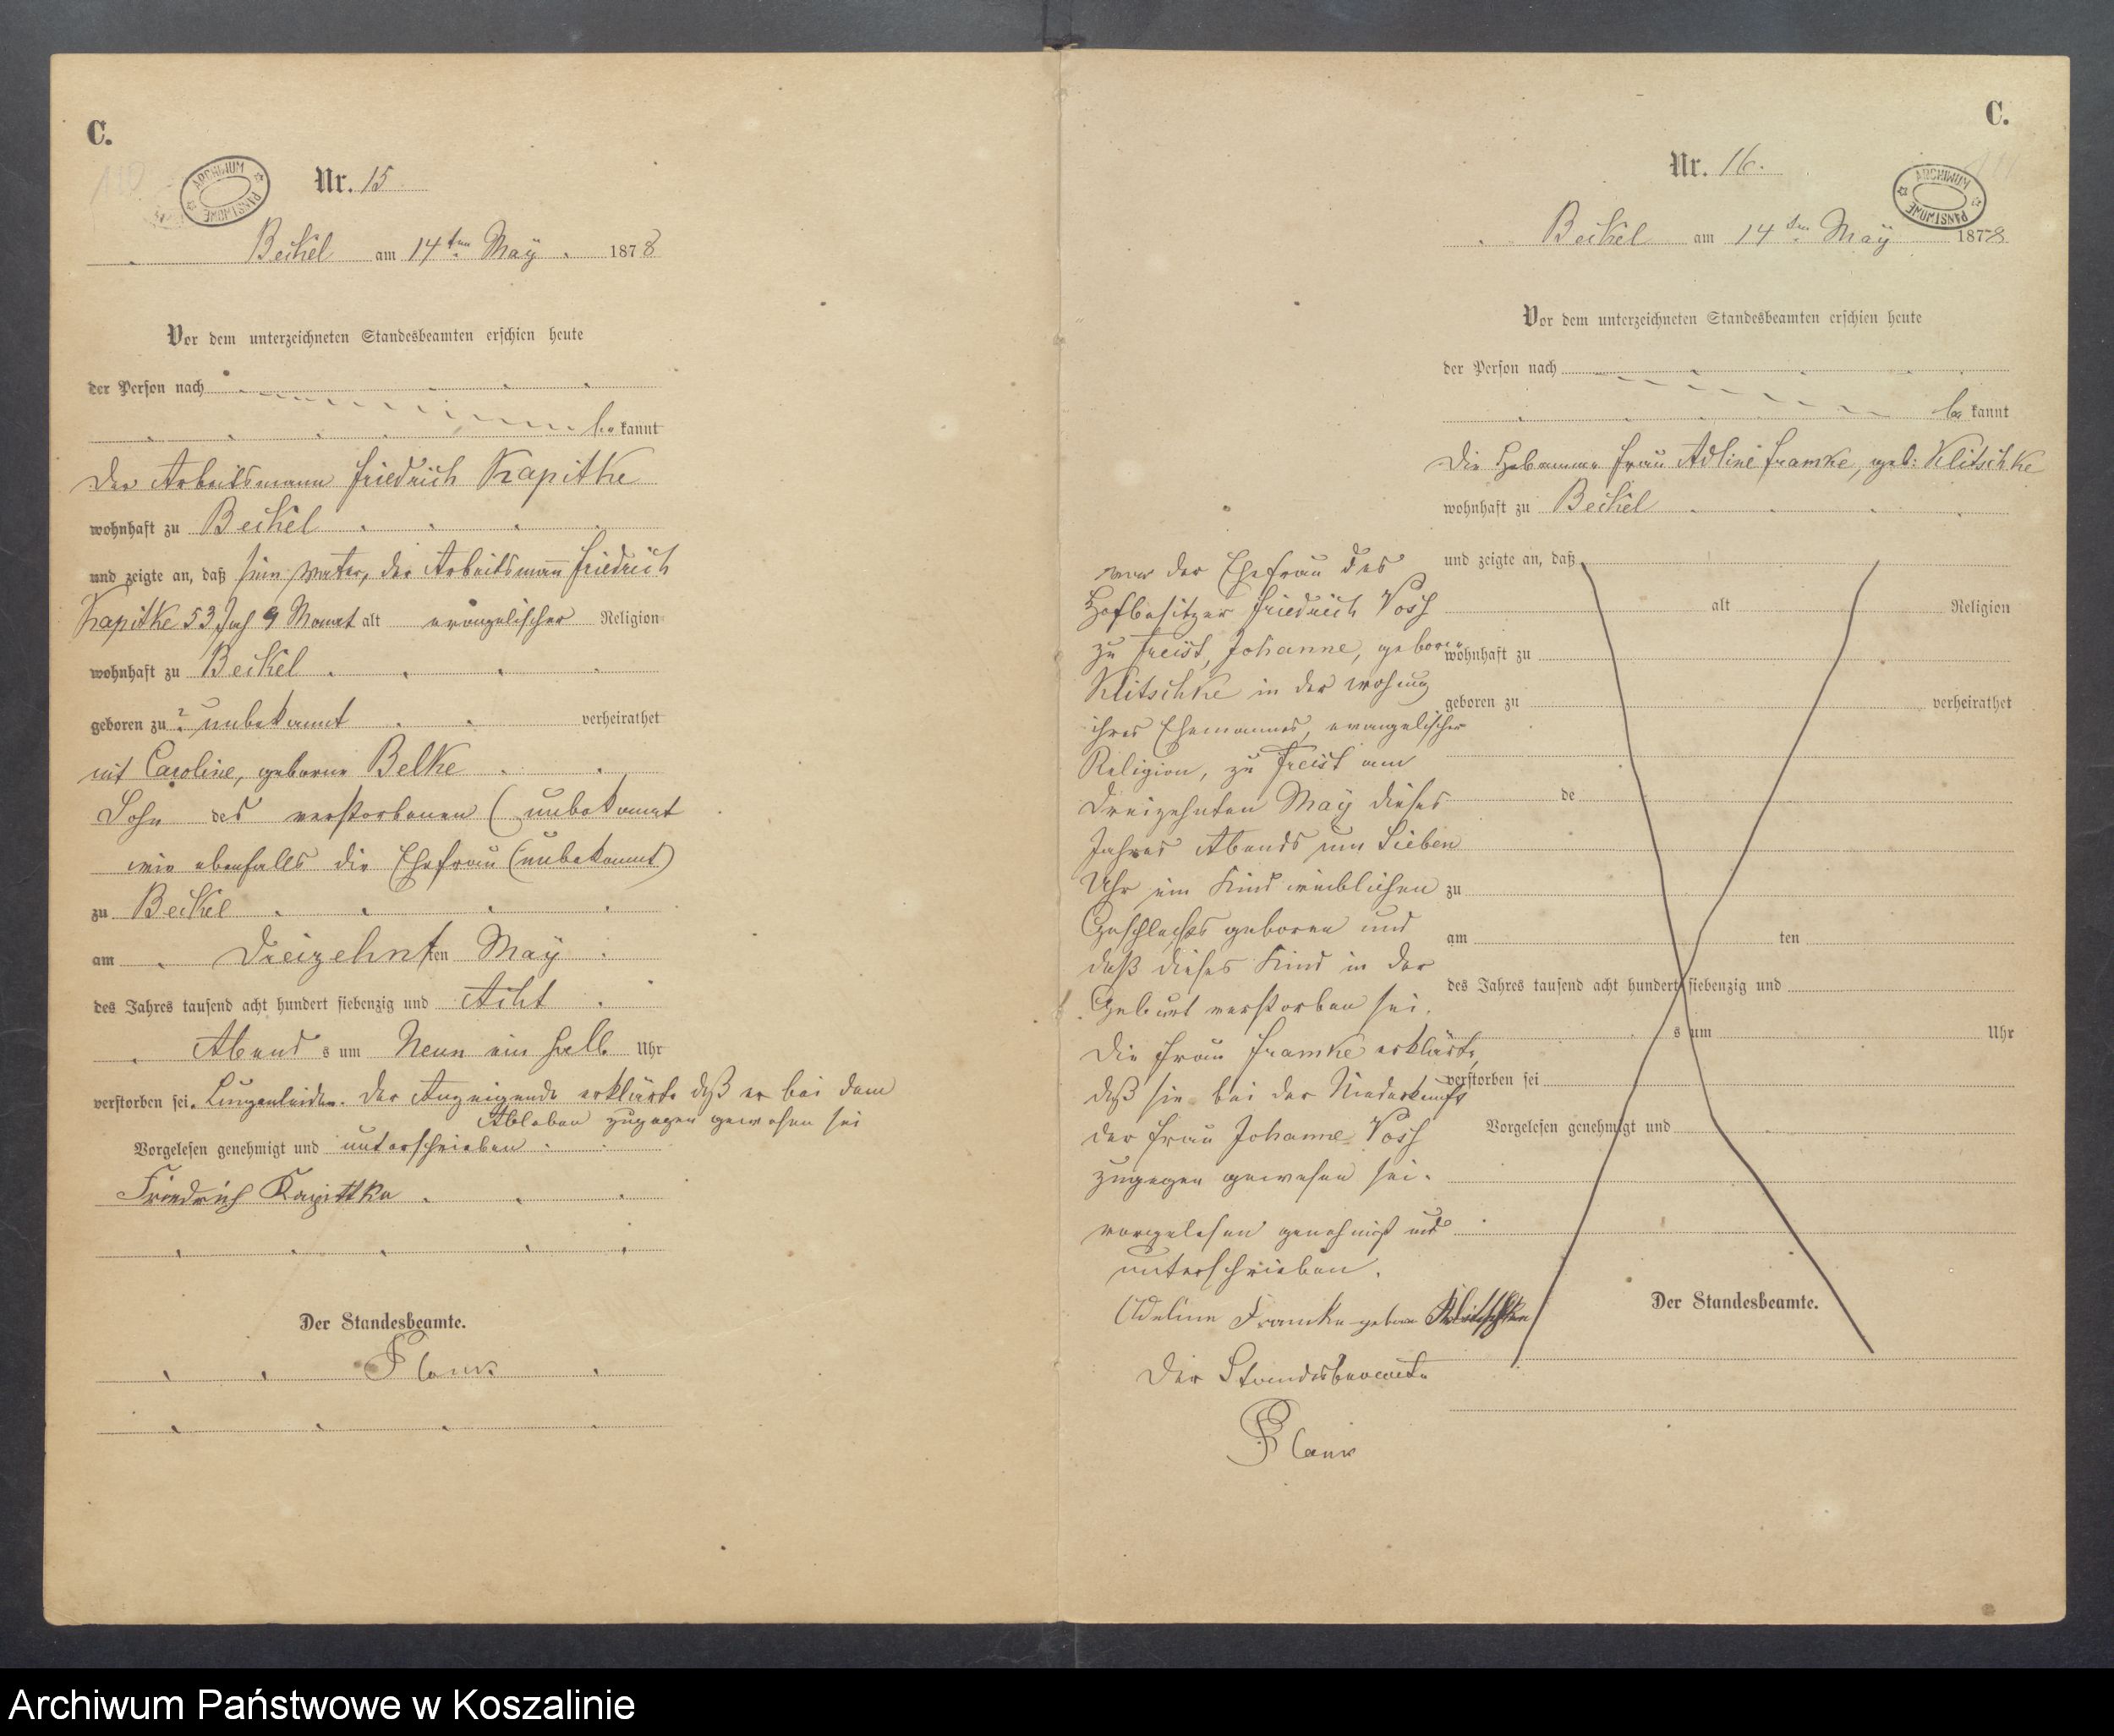 C.
ARCHIWUM PAŃSTWOWE
Nr. 15
Beckel am 14ten May 1878
Vor dem unterzeichneten Standesbeamten erschien heute
der Person nach
be kannt
Der Arbeitsmann Friedrich Kapitke
wohnhaft zu Beckel
und zeigte an, daß sein Vater, der Arbeitsmann Friedrich
Kapitke 53 Jah 9 Monat alt evangelischer Religion
wohnhaft zu Beckel
geboren zu ? unbekannt verheirathet
mit Caroline, geborne Belke
Sohn des verstorbenen (unbekannt
wie ebenfalls die Ehefrau (unbekannt)
zu Beckel
am Dreizehnten May
des Jahres tausend acht hundert siebenzig und Acht
Abend s um Neun ein halb Uhr
verstorben sei. Lungenleiden. Der Anzeigende erklärte daß er bei dem
Ableben zugegen gewesen sei
Vorgelesen genehmigt und unterschrieben
Friedrich Kapittke
Der Standesbeamte.
Plank
C.
Nr. 16.
ARCHIWUM PAŃSTWOWE
Beckel am 14ten May 1878
Vor dem unterzeichneten Standesbeamten erschien heute
der Person nach
be kannt
Die Hebamme Frau Adline Framke, geb: Klitschke
wohnhaft zu Beckel
und zeigte an, daß
von der Ehefrau des
Hofbesitzer Friedrich Voss
zu Freist, Johanne, geboren
Klitschke in der Wohnung
ihres Ehemannes, evangelischer
Religion, zu Freist am
Dreizehnten May dieses
Jahres Abends um Sieben
Uhr ein Kind weiblichen
Geschlechts geboren und
daß dieses Kind in der
Geburt verstorben sei.
Die Frau Framke erklärte,
daß sie bei der Niederkunft
der Frau Johanne Voss
zugegen gewesen sei.
vorgelesen genehmigt und
unterschrieben.
Adeline Framke geborne Klitschke
Der Standesbeamte
Plank
alt Religion
wohnhaft zu
geboren zu verheirathet
de
zu
am ten
des Jahres tausend acht hundert siebenzig und
s um Uhr
verstorben sei
Vorgelesen genehmigt und
Der Standesbeamte.
Archiwum Państwowe w Koszalinie